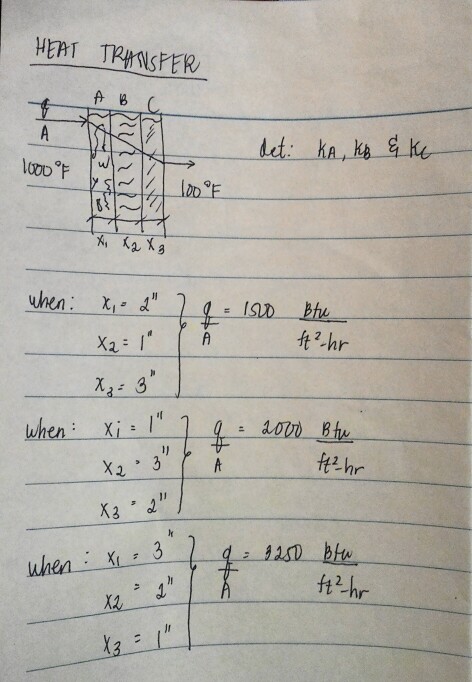 HEAT TRANSFER
A B C
q/A
det: KA, KB & KC
1000 °F
100 °F
X1 X2 X3
when: X1 = 2"
X2 = 1"
X3 = 3"
q/A = 1500 Btu/ft²-hr
when: Xi = 1"
X2 = 3"
X3 = 2"
q/A = 2000 Btu/ft²-hr
when: X1 = 3"
X2 = 2"
X3 = 1"
q/A = 3250 Btu/ft²-hr